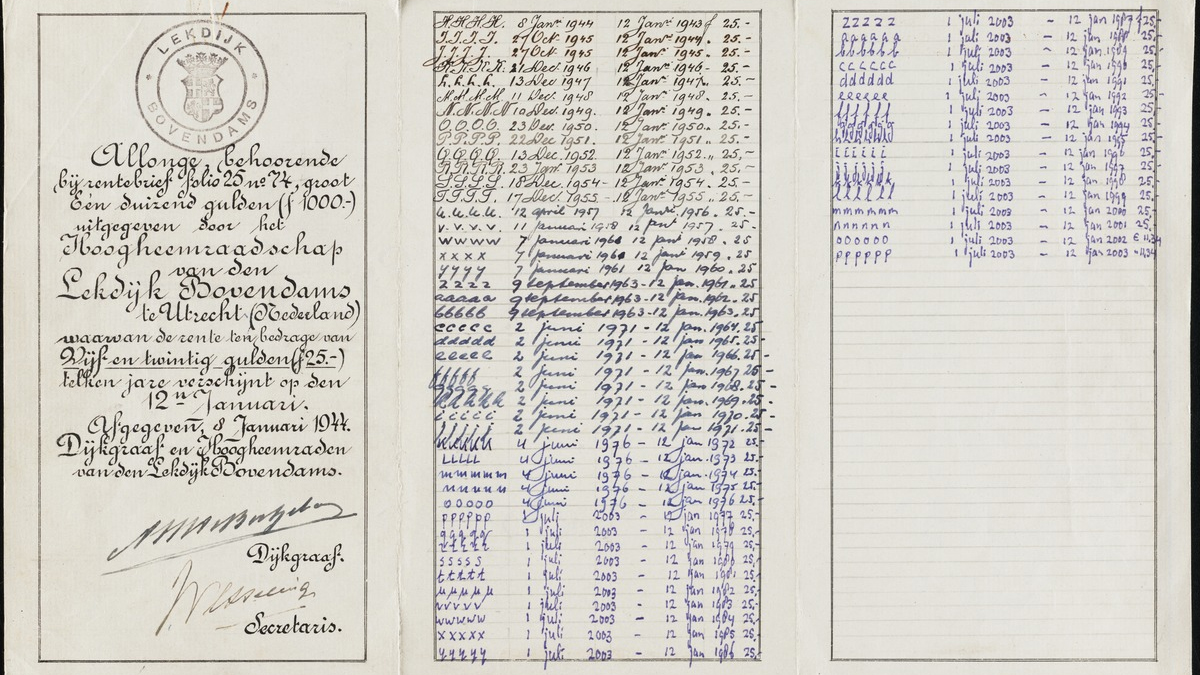 LEKDIJK
BOVENDAMS
Allonge, behoorende
bij rentebrief folio 25 nº 74, groot
Eén duizend gulden (f 1000.-)
uitgegeven door het
Hoogheemraadschap
van den
Lekdijk Bovendams
te Utrecht (Nederland)
waarvan de rente ten bedrage van
Vijf en twintig gulden (f 25.-)
telken jare verschijnt op den
12n Januari.
Afgegeven, 8 Januari 1944.
Dijkgraaf en Hoogheemraden
van den Lekdijk Bovendams.
Dijkgraaf.
Secretaris.
H.H.H.H. 8 Janr 1944 12 Janr 1943 f 25.-
I.I.I.I. 27 Oct. 1945 12 Janr 1944. 25.-
J.J.J.J. 27 Oct. 1945 12 Janr 1945. 25.-
K.K.K.K. 21 Dec. 1946 12 Janr 1946 - 25.-
L.L.L.L. 13 Dec. 1947 12 Janr 1947. 25.-
M.M.M.M. 11 Dec. 1948 12 Janr 1948. 25.-
N.N.N.N 10 Dec. 1949. 12 Janr 1949. 25.-
O.O.O.O. 23 Dec. 1950. 12 Janr 1950. 25.-
P.P.P.P. 22 Dec. 1951. 12 Janr 1951. 25.-
Q.Q.Q.Q. 13 Dec. 1952. 12 Janr 1952. 25.-
R.R.R.R. 23 Jan. 1953 12 Janr 1953. 25.-
S.S.S.S. 18 Dec. 1954 - 12 Janr 1954. 25.-
T.T.T.T. 17 Dec. 1955 - 12 Janr 1955. 25.-
u.u.u.u. 12 april 1957 12 Janr 1956. 25.-
v.v.v.v. 11 januari 1958 12 janr 1957. 25.-
wwww 7 januari 1961 12 janr 1958. 25
xxxx 7 januari 1961 12 janr 1959. 25
yyyy 7 januari 1961 12 jan 1960. 25
zzzz 9 september 1963 - 12 jan. 1961. 25
aaaaa 9 september 1963 - 12 jan. 1962. 25
bbbbb 9 september 1963 - 12 jan. 1963. 25
ccccc 2 juni 1971 - 12 jan. 1964. 25
ddddd 2 juni 1971 - 12 jan. 1965. 25
eeeee 2 juni 1971 - 12 jan. 1966. 25
fffff 2 juni 1971 - 12 jan. 1967 25 -
ggggg 2 juni 1971 - 12 jan. 1968. 25 -
hhhhh 2 juni 1971 - 12 jan. 1969. 25 -
iiiii 2 juni 1971 - 12 jan 1970. 25 -
2 juni 1971 - 12 jan 1971. 25 -
kkkkk 4 juni 1976 - 12 jan 1972 25.-
lllll 4 juni 1976 - 12 jan 1973 25.-
mmmmm 4 juni 1976 - 12 jan 1974 25.-
nnnnn 4 juni 1976 - 12 jan 1975 25.-
ooooo 4 juni 1976 - 12 jan 1976 25.-
ppppp 1 juli 2003 - 12 jan 1977 25.-
qqqqq 1 juli 2003 - 12 jan 1978 25.-
rrrrr 1 juli 2003 - 12 jan 1979 25.-
sssss 1 juli 2003 - 12 jan 1980 25.-
ttttt 1 juli 2003 - 12 jan 1981 25.-
uuuuu 1 juli 2003 - 12 jan 1982 25.-
vvvvv 1 juli 2003 - 12 jan 1983 25.-
wwwww 1 juli 2003 - 12 jan 1984 25.-
xxxxx 1 juli 2003 - 12 jan 1985 25.-
yyyyy 1 juli 2003 - 12 jan 1986 25.-
zzzzz 1 juli 2003 - 12 jan 1987 f 25.-
aaaaaa 1 juli 2003 - 12 jan 1988 25.-
bbbbbb 1 juli 2003 - 12 jan 1989 25.-
cccccc 1 juli 2003 - 12 jan 1990 25.-
dddddd 1 juli 2003 - 12 jan 1991 25.-
eeeeee 1 juli 2003 - 12 jan 1992 25.-
ffffff 1 juli 2003 - 12 jan 1993 25.-
gggggg 1 juli 2003 - 12 jan 1994 25.-
hhhhhh 1 juli 2003 - 12 jan 1995 25.-
iiiiii 1 juli 2003 - 12 jan 1996 25.-
1 juli 2003 - 12 jan 1997 25.-
kkkkkk 1 juli 2003 - 12 jan 1998 25.-
llllll 1 juli 2003 - 12 jan 1999 25.-
mmmmmm 1 juli 2003 - 12 jan 2000 25.-
nnnnnn 1 juli 2003 - 12 jan 2001 25.-
oooooo 1 juli 2003 - 12 jan 2002 € 11,34
pppppp 1 juli 2003 - 12 jan 2003 - 11,34